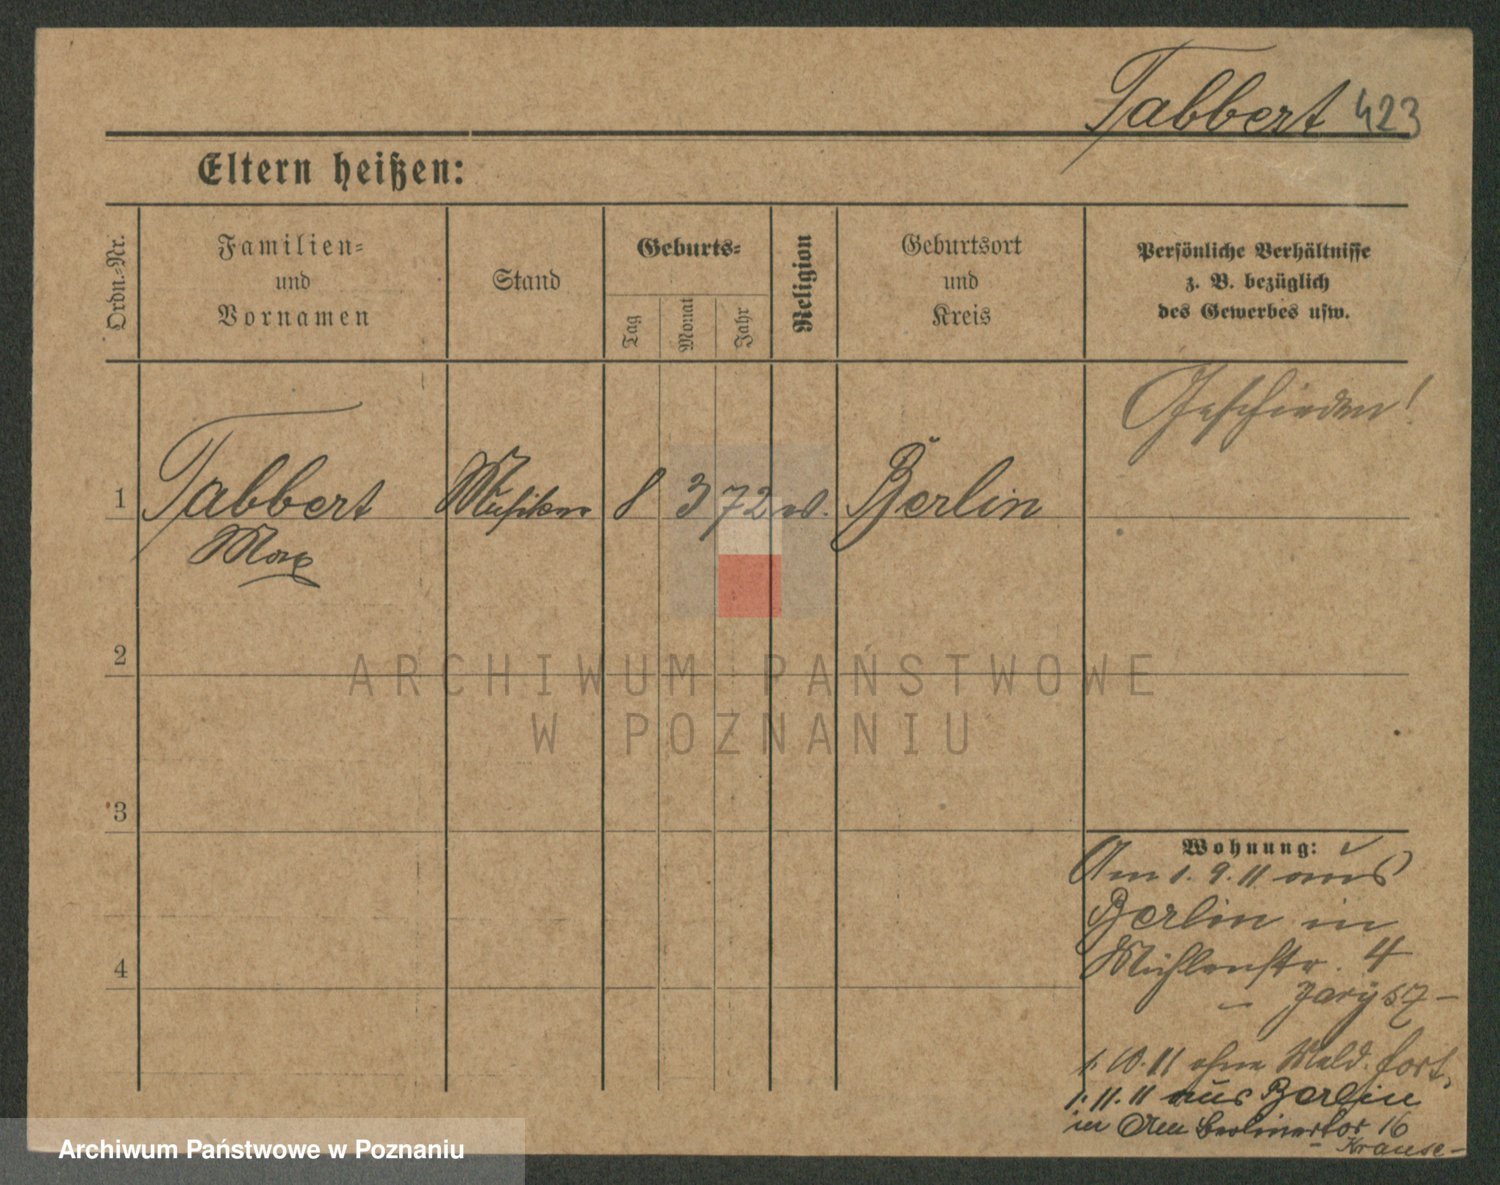 Tabbert 423
Eltern heißen:
Ordn.-Nr.
Familien-
und
Vornamen
Stand
Geburts-
Tag
Monat
Jahr
Religion
Geburtsort
und
Kreis
Persönliche Verhältnisse
z. B. bezüglich
des Gewerbes usw.
Geschieden!
1 Tabbert Musiker 8 3 72 ev. Berlin
Max
2
3
4
Wohnung:
Am 1. 9. 11 aus
Berlin in
Mühlenstr. 4
1. 10. 11 ohne Meld. fort.
1. 11. 11 aus Berlin
in Am Berlinertor 16
- Krause -
ARCHIWUM PAŃSTWOWE
W POZNANIU
Archiwum Państwowe w Poznaniu